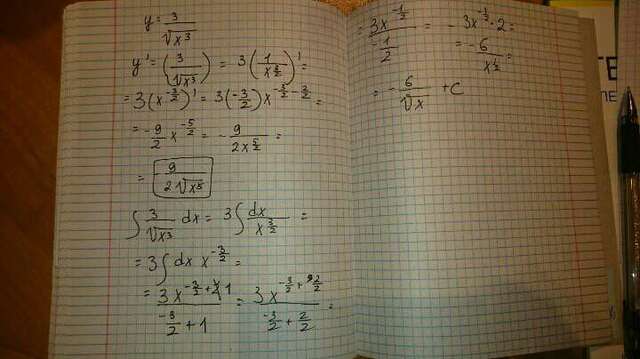 y = 3/√x³
y' = (3/√x³)' = 3(1/x^(3/2))' =
= 3(x^(-3/2))' = 3(-3/2)x^(-3/2 - 2/2) =
= -9/2 x^(-5/2) = -9/(2x^(5/2)) =
= -9/(2√x⁵)
∫ 3/√x³ dx = 3∫ dx/x^(3/2) =
= 3∫ dx x^(-3/2) =
= 3x^(-3/2 + 1)/(-3/2 + 1) = 3x^(-3/2 + 2/2)/(-3/2 + 2/2) =
= 3x^(-1/2)/(-1/2) = -3x^(-1/2)·2 =
= -6/x^(1/2) =
= -6/√x + C
TE